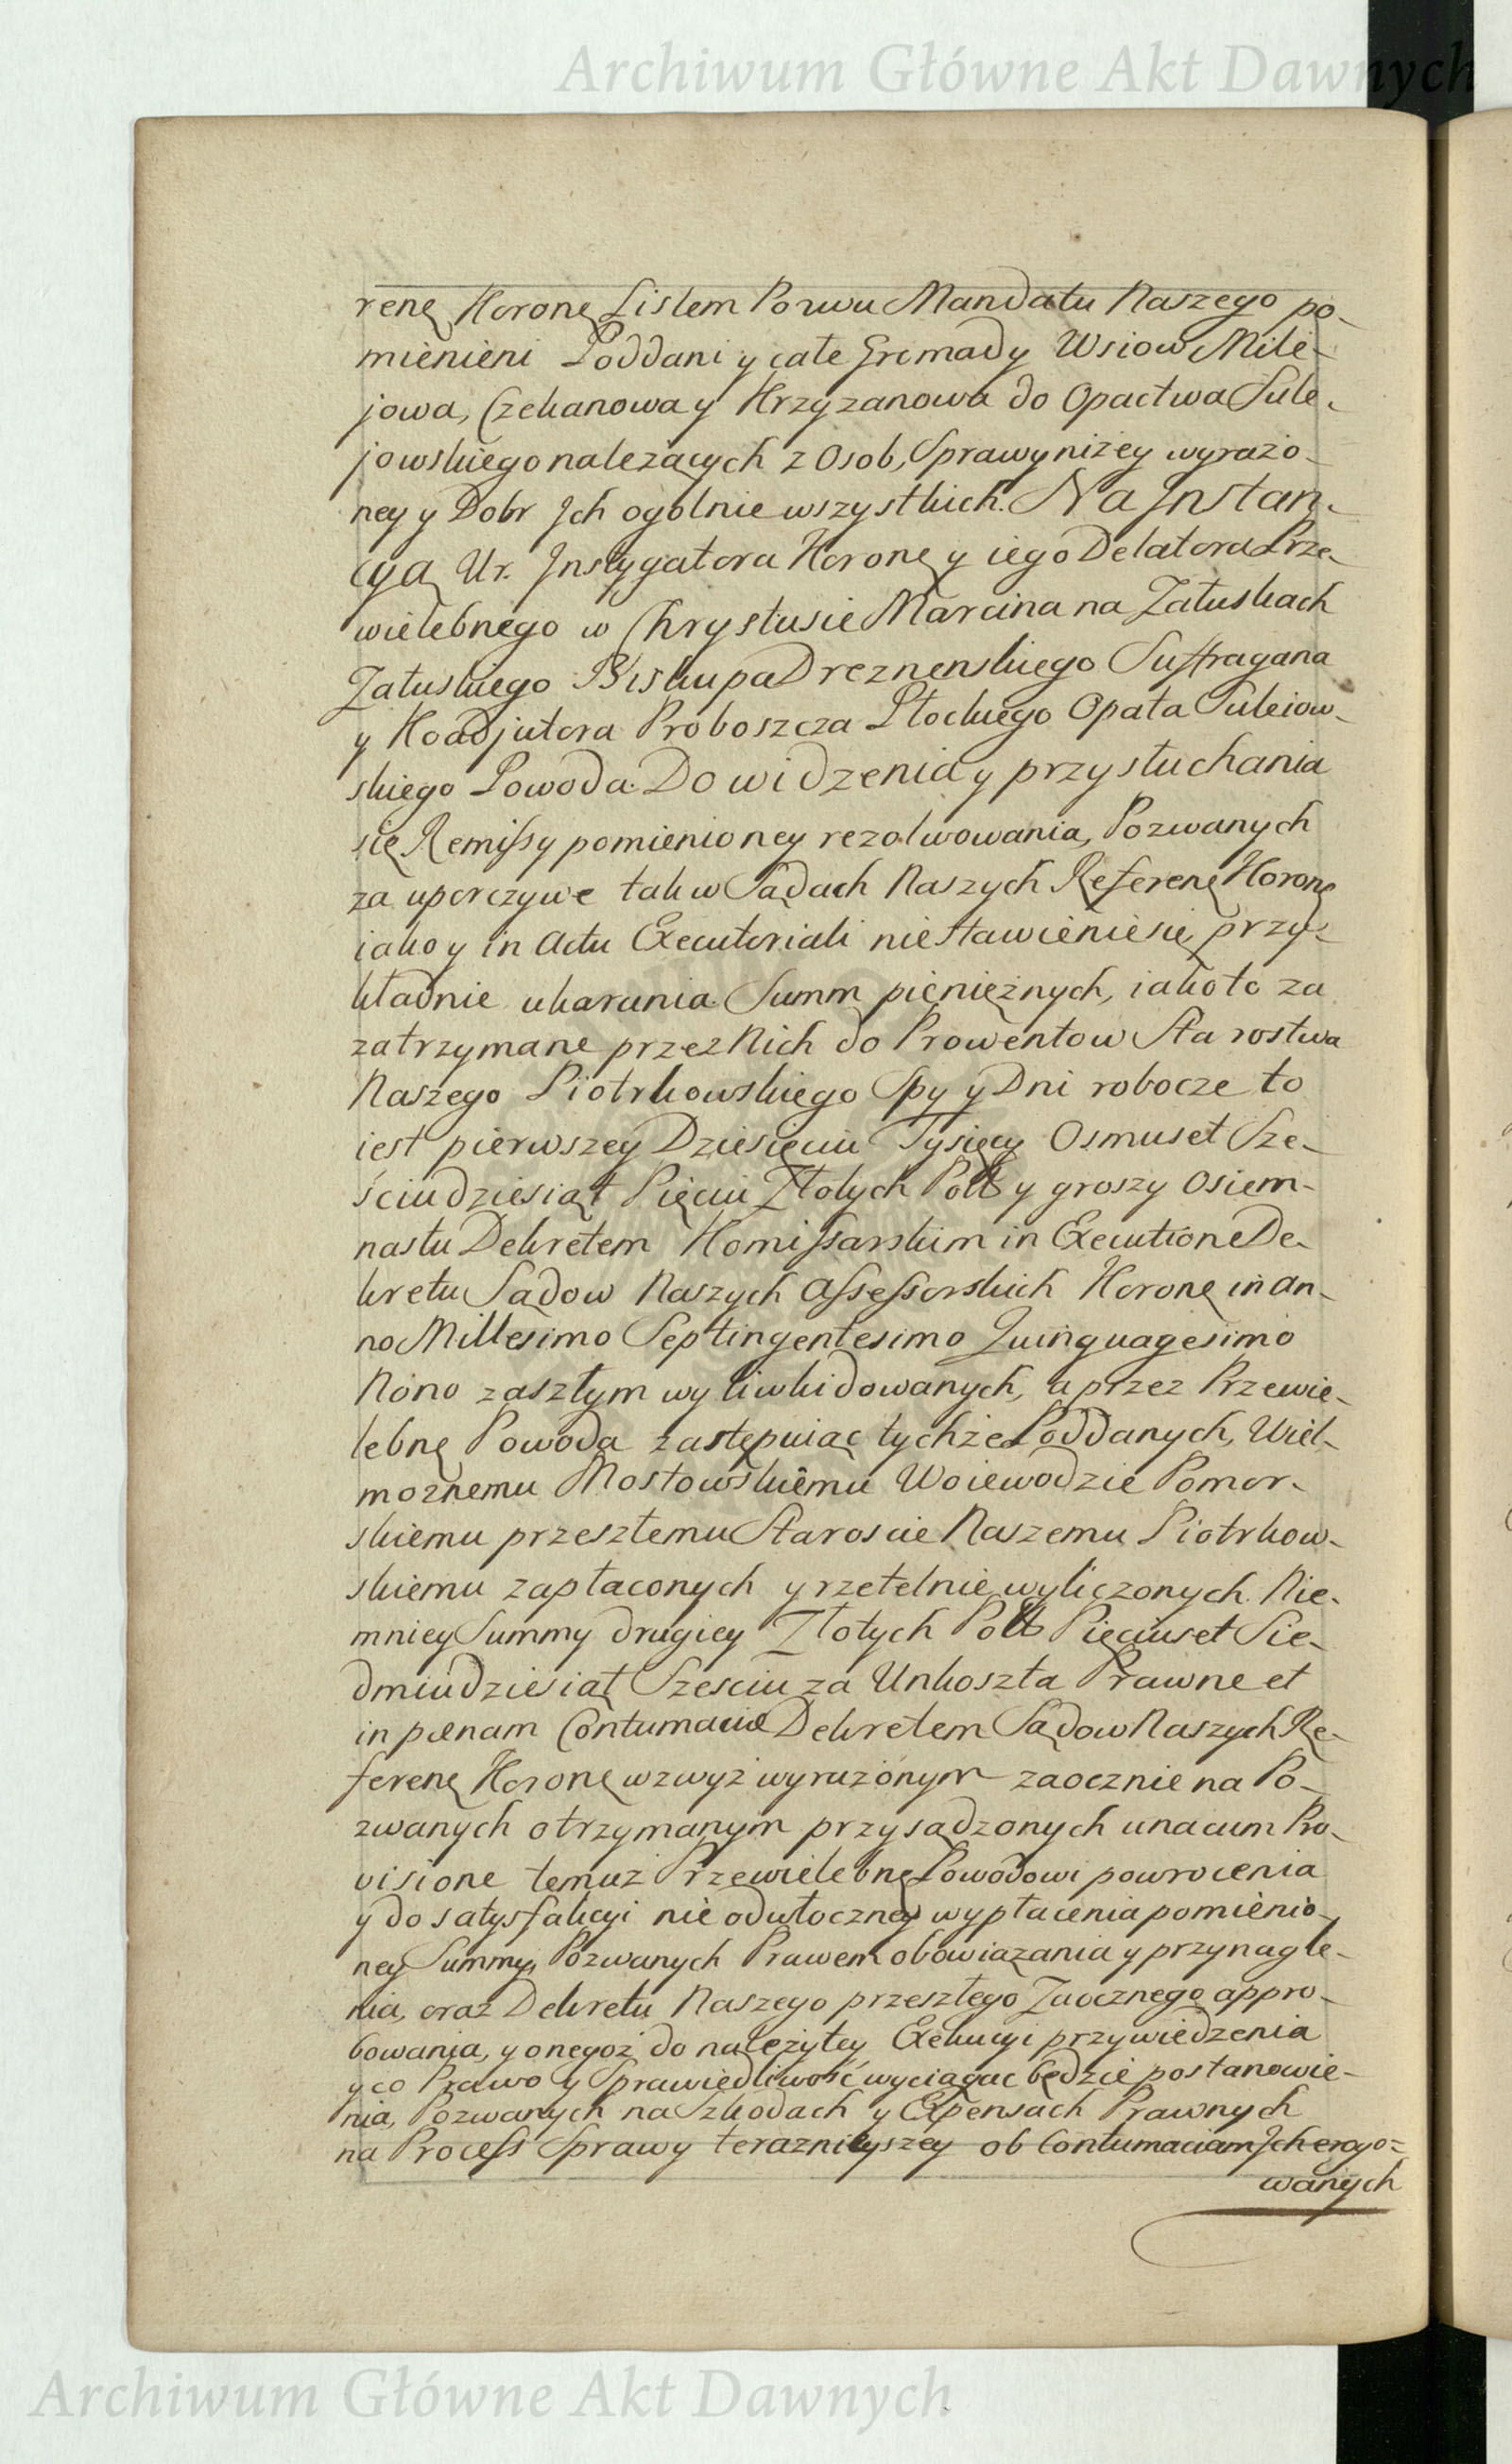 Archiwum Główne Akt Dawnych
renę Koronę Listem Pozwu Mandatu Naszego po-
mienieni Poddani y całe Gromady Wsiow Mile-
jowa, Czekanowa y Krzyzanowa do Opactwa Sule-
jowskiego nalezących z Osob, Sprawy niżey wyrazo-
ney y Dobr Jch ogolnie wszystkich. Na Jnstan-
cyą Ur. Jnstygatora Koronę y iego Delatora Prze-
wielebnego w Chrystusie Marcina na Załuskach
Załuskiego Biskupa Dreznenskiego Suffragana
y Koadjutora Proboszcza Płockiego Opata Suleiow-
skiego Powoda. Do widzenia y przysłuchania
się Remissy pomienioney rezolwowania, Pozwanych
za uporczywe tak w Sądach Naszych Referenę Koronę
iako y in Actu Executoriali nie stawienie się przy-
kładnie ukarania Summ pięnięznych, iako to za
zatrzymane przez Nich do Prowentow Starostwa
Naszego Piotrkowskiego Spy y Dni robocze to
iest pierwszey Dziesięciu Tysięcy Osmuset Sze-
ściudziesiąt Pięciu Złotych Polł y groszy Osiem-
nastu Dekretem Komissarskim in Executione De-
kretu Sądow Naszych Assessorskich Koronę in An-
no Millesimo Septingentesimo Quinquagesimo
Nono zaszłym wyliwkidowanych, a przez Przewie-
lebnę Powoda zastępuiąc tychże Poddanych, Wiel-
możnemu Mostowskiemu Woiewodzie Pomor-
skiemu przeszłemu Staroscie Naszemu Piotrkow-
skiemu zapłaconych y rzetelnie wyliczonych. Nie-
mniey Summy drugiey Złotych Polł Pięciuset Sie-
dmiudziesiąt Szesciu za Unkoszta Prawne et
in pœnam Contumaciæ Dekretem Sądow Naszych Re-
ferenę Koronę wzwyż wyrażonym zaocznie na Po-
zwanych otrzymanym przysądzonych una cum Pro-
visione temuż Przewielebnę Powodowi powrocenia
y do satysfakcyi nieodwłoczney wypłacenia pomienio-
ney Summy, Pozwanych Prawem obowiązania y przynagle-
nia, oraz Dekretu Naszego przeszłego Zaocznego appro-
bowania, y onegoż do należytey Exekucyi przywiedzenia
y co Prawo y Sprawiedliwość wyciągac będzie postanowie-
nia, Pozwanych na Szkodach y Expensach Prawnych
na Process Sprawy teraznieyszey ob Contumaciam Jch erogo-
wanych
Archiwum Główne Akt Dawnych